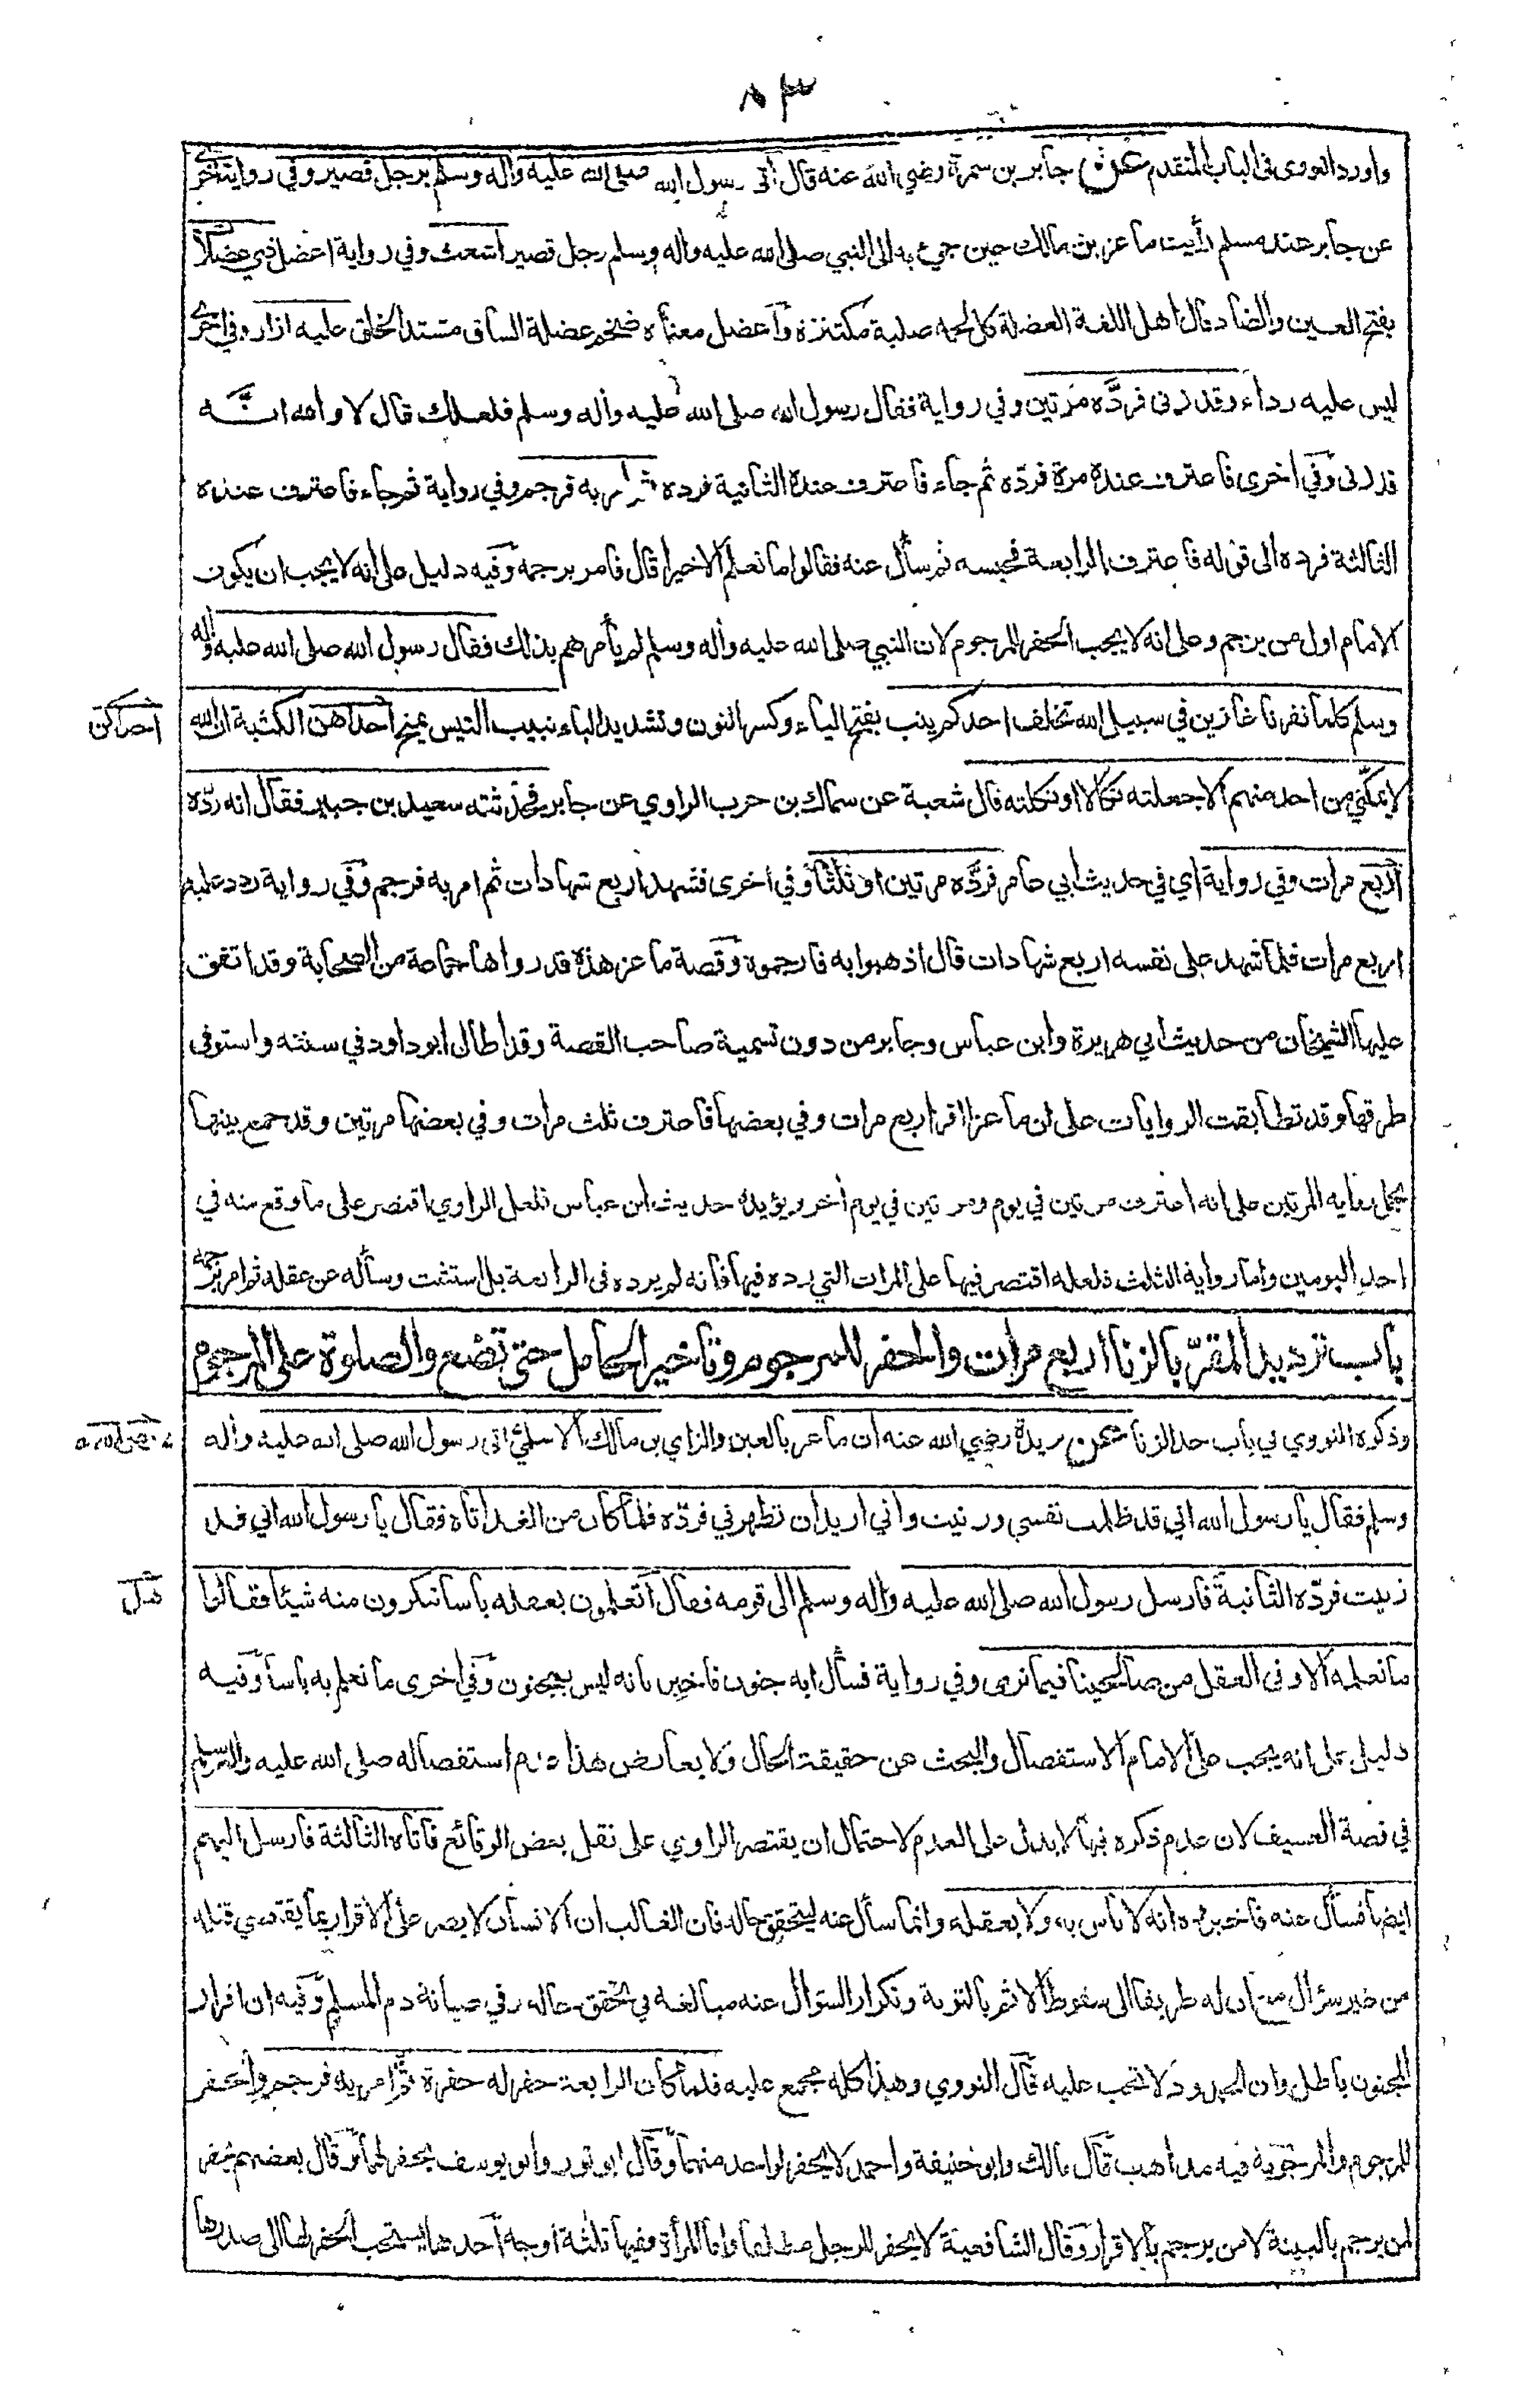 ٨٣
واورد النووى فى الباب المتقدم عن جابر بن سمرة رضي الله عنه قال أتى رسول الله صلى الله عليه واله وسلم برجل قصير وفي رواية اخرى
عن جابر عند مسلم رأيت ماعز بن مالك حين جيء به الى النبي صلى الله عليه واله وسلم رجل قصير اشعث وفي رواية اعضل ذي عضلات
بفتح العين والضاد قال اهل اللغة العضلة كل لحمة صلبة مكتنزة واعضل معناه ضخم عضلة الساق مشتد الخلق عليه ازار وفي اخرى
ليس عليه رداء وقد زنى فردّه مرتين وفي رواية فقال رسول الله صلى الله عليه واله وسلم فلعلك قال لا والله انّه
قد زنى وفي اخرى فاعترف عنده مرة فردّه ثم جاء فاعترف عنده الثانية فرده ثم امر به فرجم وفي رواية ثم جاء فاعترف عنده
الثالثة فرده الى قوله فاعترف الرابعة فحبسه ثم سأل عنه فقالوا ما نعلم الا خيرا قال فامر برجمه وفيه دليل على انه لا يجب ان يكون
الامام اول من يرجم وعلى انه لا يجب الحفر للمرجوم لان النبي صلى الله عليه واله وسلم لم يأمرهم بذلك فقال رسول الله صلى الله عليه واله
وسلم كلما نفرنا غازين في سبيل الله تخلف احدكم ينب بفتح الياء وكسر النون وتشديد الباء نبيب التيس يمنح أحداهن الكثبة ان الله
احداكن
لا يمكنّي من احد منهم الا جعلته نكالا او نكلته قال شعبة عن سماك بن حرب الراوي عن جابر فحدثته سعيد بن جبير فقال انه ردّه
أربع مرات وفي رواية اي في حديث ابي عامر فردّه مرتين او ثلثا وفي أخرى فشهد اربع شهادات ثم امر به فرجم وفي رواية ردد عليه
اربع مرات فلما شهد على نفسه اربع شهادات قال اذهبوا به فارجموه وقصة ماعز هذه قد رواها جماعة من الصحابة وقد اتفق
عليها الشيخان من حديث ابي هريرة وابن عباس وجابر من دون تسمية صاحب القصة وقد اطال ابو داود في سننه واستوفى
طرقها وقد تطابقت الروايات على ان ماعزا اقر اربع مرات وفي بعضها فاعترف ثلث مرات وفي بعضها مرتين وقد جمع بينها
بحمل رواية المرتين على انه اعترف مرتين في يوم ومرتين في يوم أخر ويؤيده حديث ابن عباس فلعل الراوي اقتصر على ما وقع منه في
احد اليومين واما رواية الثلث فلعله اقتصر فيها على المرات التي رده فيها فانه لم يرده فى الرابعة بل استثبت وسأله عن عقله ثم امر برجمه
باب ترديد المقرّ بالزنا اربع مرات والحفر للمرجوم وتاخير الحامل حتى تضع والصلوة على المرجوم
وذكره النووي في باب حد الزنا عن بريدة رضي الله عنه ان ماعز بالعين والزاي بن مالك الاسلمي اتى رسول الله صلى الله عليه واله
وسلم فقال يا رسول الله اني قد ظلمت نفسي وزنيت واني اريد ان تطهرني فردّه فلما كان من الغد اتاه فقال يا رسول الله اني قد
زنيت فردّه الثانية فارسل رسول الله صلى الله عليه واله وسلم الى قومه فقال أتعلمون بعقله باسا تنكرون منه شيئا فقالوا
ما نعلمه الا وفى العقل من صالحينا فيما نرى وفي رواية فسأل ابه جنون فاخبر بانه ليس بمجنون وفي اخرى ما نعلم به باسا وفيه
دليل على انه يجب على الامام الاستفصال والبحث عن حقيقة الحال ولا يعارض هذا عدم استفصاله صلى الله عليه واله وسلم
في قصة العسيف لان عدم ذكره فيها لا يدل على العدم لاحتمال ان يقتصر الراوي على نقل بعض الوقائع فاتاه الثالثة فارسل اليهم
ايضا فسأل عنه فاخبروه انه لا باس به ولا بعقله وانما سأل عنه ليتحقق حاله فان الغالب ان الانسان لا يصر على الاقرار بما يقتضي قتله
من غير سؤال مع ان له طريقا الى سقوط الاثم بالتوبة وتكرار السؤال عنه مبالغة في تحقق حاله وفي صيانة دم المسلم وفيه ان اقرار
المجنون باطل وان الحدود لا تجب عليه قال النووي وهذا كله مجمع عليه فلما كان الرابعة حفر له حفرة ثم امر به فرجم والحفر
للمرجوم والمرجومة فيه مذاهب قال مالك وابو حنيفة واحمد لا يحفر لواحد منهما وقال ابو ثور وابو يوسف يحفر لهما وقال بعضهم يحفر
لمن يرجم بالبينة لا من يرجم بالاقرار وقال الشافعية لا يحفر للرجل مطلقا واما المرأة ففيها ثلثة أوجه أحدها يستحب الحفر لها الى صدرها